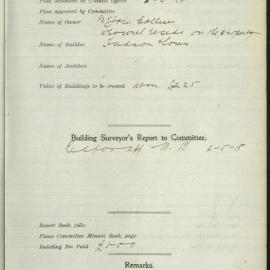 Plan deposited in Council Office 2-5-18
Plan approved by Committee
Name of Owner John
on the property
Name of Builder & Sons
Name of Architect
Value of Buildings to be erected £225
Building Surveyor's Report to Committee.
2-5-18
Report Book, folio
Plans Committee Minute Book, page
Building Fee Paid £1-0-0
Remarks.